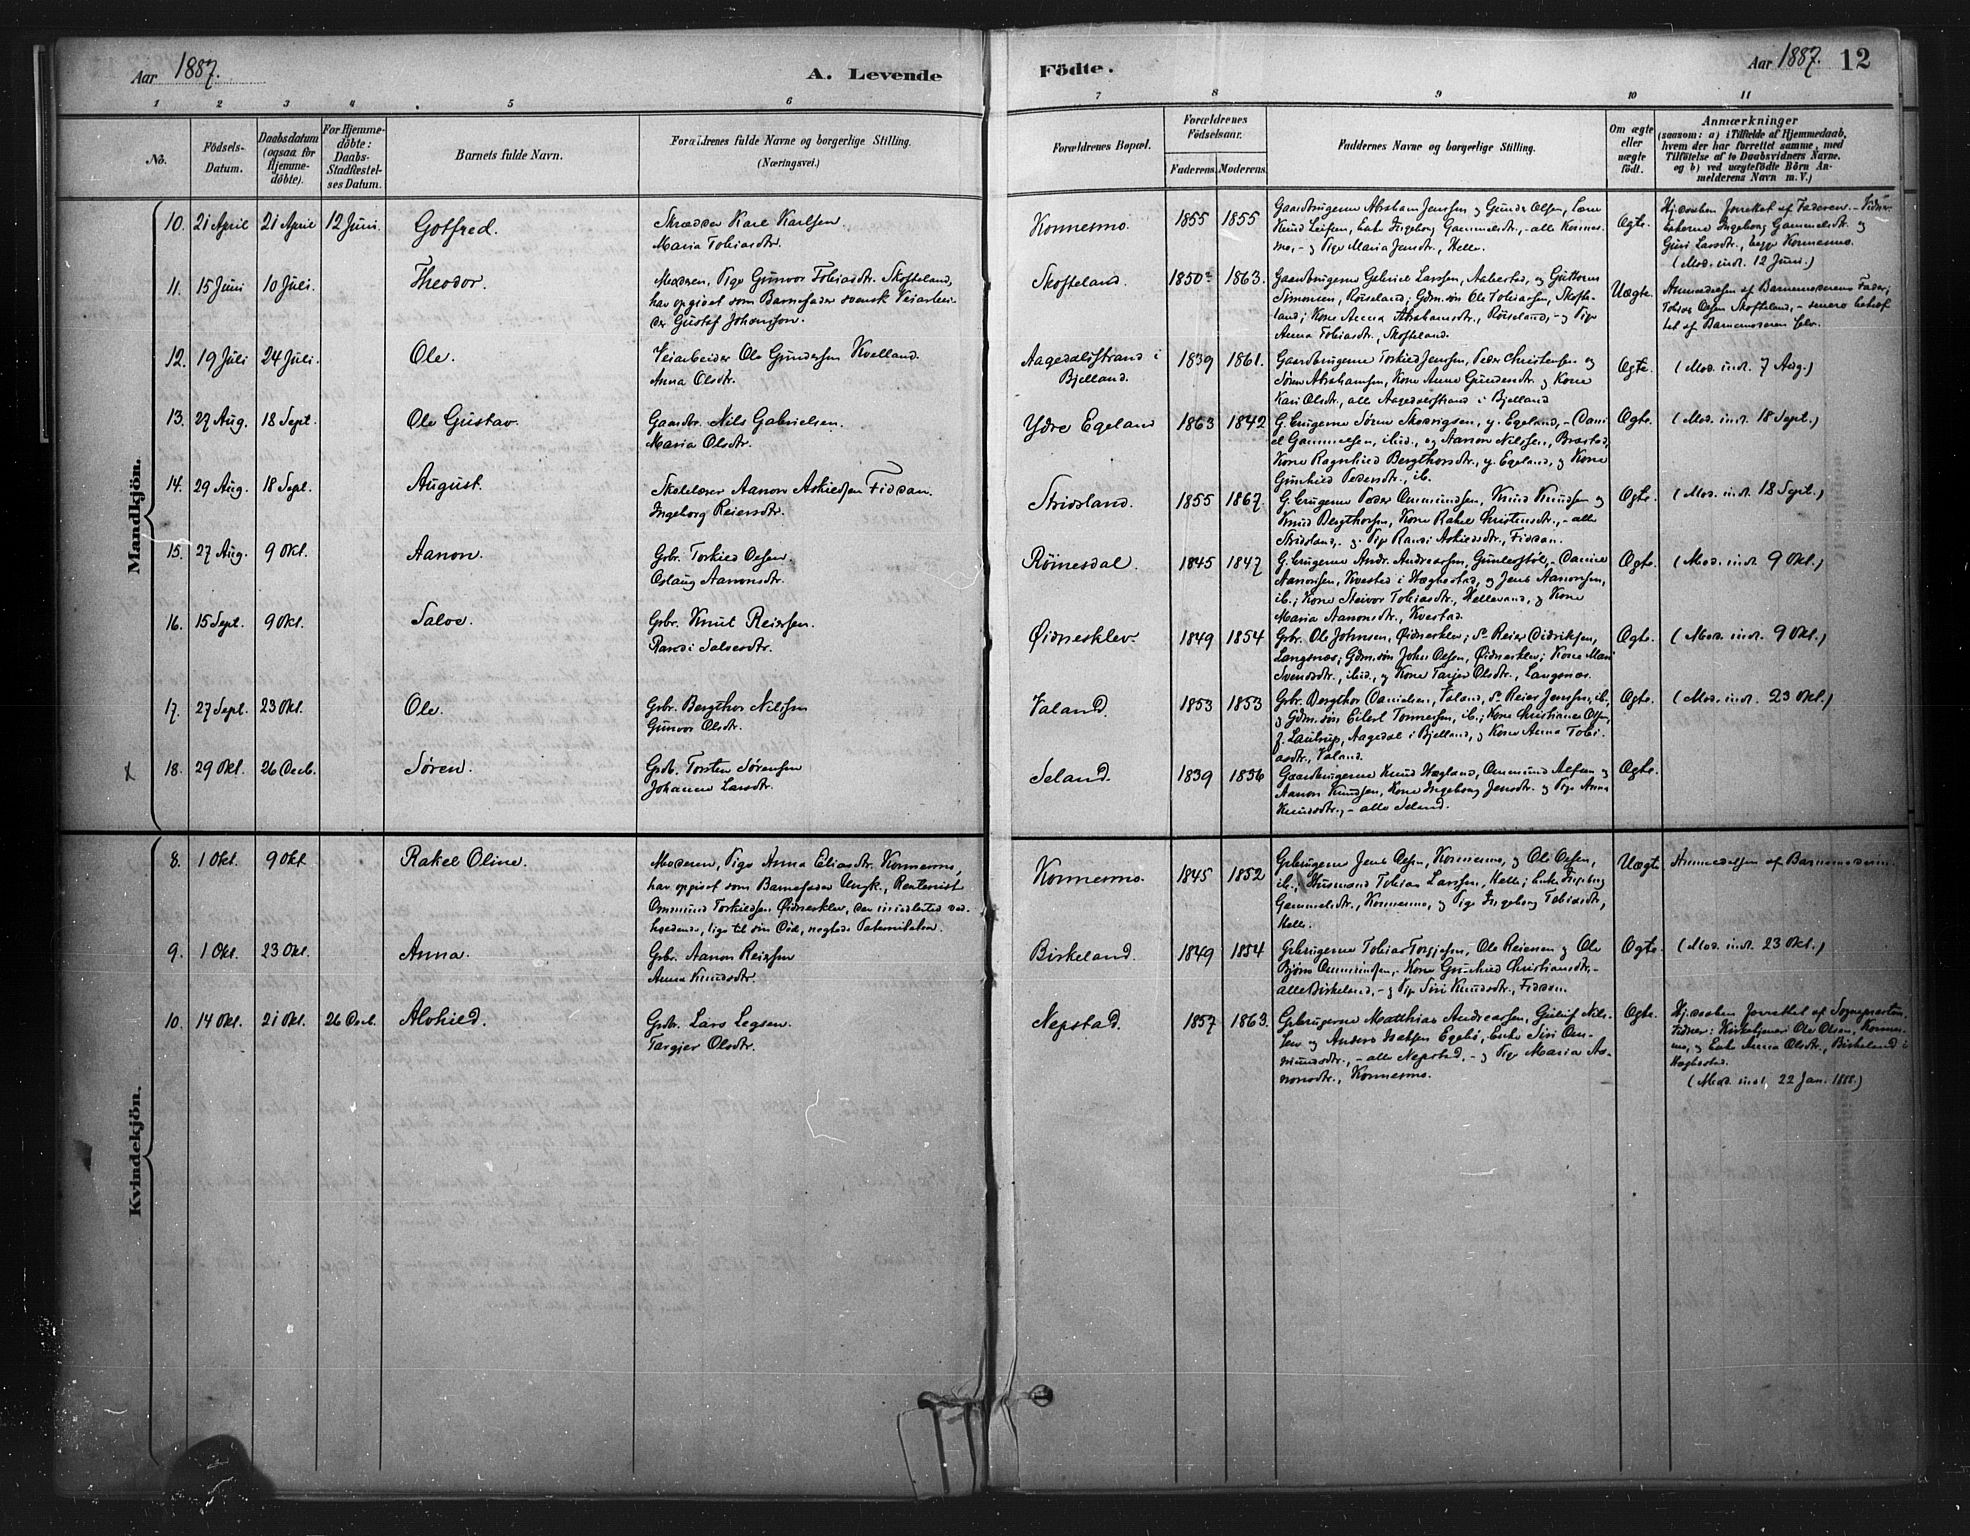 Aar 1887.
A. Levende Födte.
Aar 1887. 12
1 2 3 4 5 6 7 8 9 10 11
No.
Födsels-Datum.
Daabsdatum (ogsaa for Hjemme-döbte).
For Hjemme-döbte: Daabs-Stadfæstel-ses Datum.
Barnets fulde Navn.
Forældrenes fulde Navne og borgerlige Stilling. (Næringsvei.)
Forældrenes Bopæl.
Forældrenes Födselsaar.
Faderens. Moderens.
Faddernes Navne og borgerlige Stilling.
Om ægte eller uægte födt.
Anmærkninger
(saasom: a) i Tilfælde af Hjemmedaab, hvem der har forrettet samme, med Tilföielse af to Daabsvidners Navne. og b) ved uægtefödte Börn Anmelderens Navn m. V.)
Mandkjön.
10. 21 April 21 April 12 Juni. Gotfred.
Skrædder Karl Karlsen
Maria Tobiasdtr.
Konnesmo. 1855 1855
Gaardbrugerne Abraham Jenssen og Gunder Olsen,
Knud Leifsen, Enke Ingeborg Gammelsdtr., - alle Konnes-
mo, - og Pige Maria Jensdtr., Helle.
Ægte.
Hj.daaben forrettet af Faderen. - Vidner:
Enkerne Ingeborg Gammelsdtr. og
Guri Larsdtr., begge Konnesmo.
(Mod. indt. 12 Juni.)
11. 15 Juni 10 Juli. Theodor.
Moderen, Pige Gunvor Tobiasdtr. Skofteland,
har opgivet som Barnefader svensk Veiarbei-
der Gustaf Johansson.
Skofteland. 1850? 1863.
Gaardbrugerne Gabriel Larssen, Aabestad, og Guttorm
Simonsen, Röiseland; Gdm.sön Ole Tobiassen, Skofte-
land; Kone Anna Abrahamsdtr., Röiseland, - og Pige
Anna Tobiasdtr., Skofteland.
Uægte.
Anmeldelsen af Barnemoderens Fader,
Tobias Olsen Skofteland, - senere bekræf-
tet af Barnemoderen selv.
12. 19 Juli 24 Juli. Ole.
Veiarbeider Ole Gundersen Kvelland.
Anna Olsdtr.
Aagedalsstrand i
Bjelland. 1839 1861.
Gaardbrugerne Torkild Jenssen, Peder Christensen og
Sören Abrahamsen, Kone Anne Gundersdtr. og Kone
Kari Olsdtr., alle Aagedalsstrand i Bjelland
Ægte. (Mod. indt. 7 Aug.)
13. 27 Aug. 18 Sept. Ole Gustav.
Gaardbr. Nils Gabrielsen.
Maria Olsdtr.
Ydre Egeland 1863 1842
G.brugerne Sören Skovrigsen, y. Egeland, - Dani-
el Gammelsen, ibid., og Aanon Nilssen, Brastad,
Kone Ragnhild Bergthorsdtr., y. Egeland, og Kone
Gunhild Pedersdtr., ib.
Ægte. (Mod. indt. 18 Sept.)
14. 29 Aug. 18 Sept. August.
Skolelærer Aanon Askildsen Fidsan.
Ingeborg Reiersdtr.
Stridsland. 1855 1867.
G.brugerne Peder Ommundsen, Knud Knudsen og
Knud Bergthorsen, Kone Rakel Christensdtr., - alle
Stridsland, - og Pige Randi Askildsdtr., Fidsan.
Ægte. (Mod. indt. 18 Sept.)
15. 27 Aug. 9 Okt. Aanon.
Gbr. Torkild Olsen
Oslaug Aanonsdtr.
Römesdal. 1845 1847
G.brugerne Andr. Andreassen, Gunlerstöl, - Daniel
Aanonsen, Kvestad i Hægbostad, og Jens Aanonsen,
ib.; Kone Steivor Tobiasdtr., Helleland, og Kone
Maria Aanonsdtr., Kvestad.
Ægte. (Mod. indt. 9 Okt.)
16. 15 Sept. 9 Okt. Salve.
Gbr. Knut Reiersen.
Randi Salvesdtr.
Øidnesklev 1849 1854
Gbr. Ole Johnsen, Øidnesklev; do Reier Didriksen,
Langenæs; Gdm.sön John Olsen, Øidnesklev; Kone Mari
Svendsdtr., ibid., og Kone Tarjer Olsdtr., Langenæs.
Ægte. (Mod. indt. 9 Okt.)
17. 27 Sept. 23 Okt. Ole.
Gbr. Bergthor Nilssen
Gunvor Olsdtr.
Valand. 1853 1853
Gbr. Bergthor Danielsen, Valand, do Reier Jenssen, ib.,
og Gdm.sön Eilert Tonnessen, ib.; Kone Christiane Olsen,
f. Lautrup, Aagedal i Bjelland, og Kone Anna Tobi-
asdtr., Valand.
Ægte. (Mod. indt. 23 Okt.)
x 18. 29 Okt. 26 Decb. Sören.
Gbr. Torsten Sörensen
Johanne Larsdtr.
Seland. 1839 1856
Gaardbrugerne Knud Hægland, Ommund Alfsen og
Aanon Knudsen, Kone Ingeborg Jensdtr. og Pige Anna
Knudsdtr., - alle Seland.
Ægte.
Kvindekjön.
8. 1 Okt. 9 Okt. Rakel Oline.
Moderen, Pige Anna Eliasdtr. Konnesmo,
har opgivet som Barnefader Ungk., Rentenist
Ommund Torkildsen Øidnesklev, der imidlertid ved-
holdende, lige til sin Död, nægtede Paterniteten.
Konnesmo. 1845 1852
Gbrugerne Jens Olsen, Konnesmo, og Ole Olsen,
ib.; Husmand Tobias Larssen, Helle; Enke Ingeborg
Gammelsdtr., Konnesmo, og Pige Ingeborg Tobiasdtr.,
Helle.
Uægte Anmeldelsen af Barnemoderen.
9. 1 Okt. 23 Okt. Anna.
Gbr. Aanon Reiersen
Anna Knudsdtr.
Birkeland. 1849 1854
Gbrugerne Tobias Torgjersen, - Ole Reiersen og Ole
Björn Ommundsen, - Kone Gunhild Christiansdtr., -
alle Birkeland, - og Pige Siri Knudsdtr., Fidsan.
Ægte. (Mod. indt. 23 Okt.)
10. 14 Okt. 21 Okt. 26 Decb. Alvhild.
Gbr. Lars Legsen.
Targjer Olsdtr.
Nepstad. 1857 1863.
Gbrugerne Matthias Andreassen, Nils-
sen og Anders Egebö, Enke Siri Om-
mundsdtr., - alle Nepstad, - og Pige Maria Aa-
nonsdtr., Konnesmo.
Ægte.
Hj.daaben forrettet af Sognepresten,
Vidner: Kirketjener Ole Olsen, Konnes-
mo, og Enke Anna Olsdtr., Birkeland i
Hægbostad.
(Mod. indt. 22 Jan. 1888.)